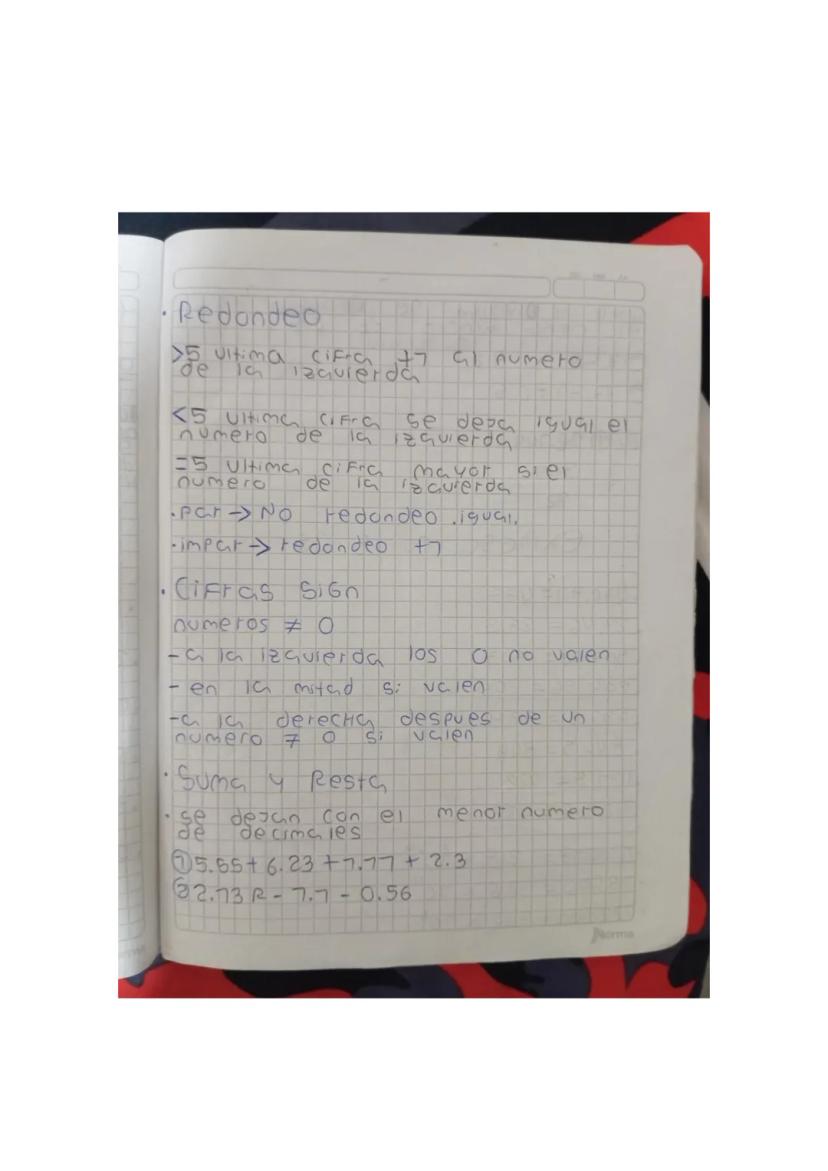 • Redondeo
>5 ultima cifra +1 al numero
de la izquierda
<5 ultima cifra se deja igual el
numero de la izquierda
=5 ultima cifra mayor si el
numero de la izquierda
• par → NO redondeo .igual.
• impar → redondeo +1
• Cifras Sign
numeros ≠ 0
- a la izquierda los 0 no valen
- en la mitad si valen
- a la derecha despues de un
numero ≠ 0 si valen
• Suma y Resta
• se dejan con el menor numero
de decimales
① 5.55 + 6.23 + 1.77 + 2.3
② 2.13 - 1.1 - 0.56
Norma